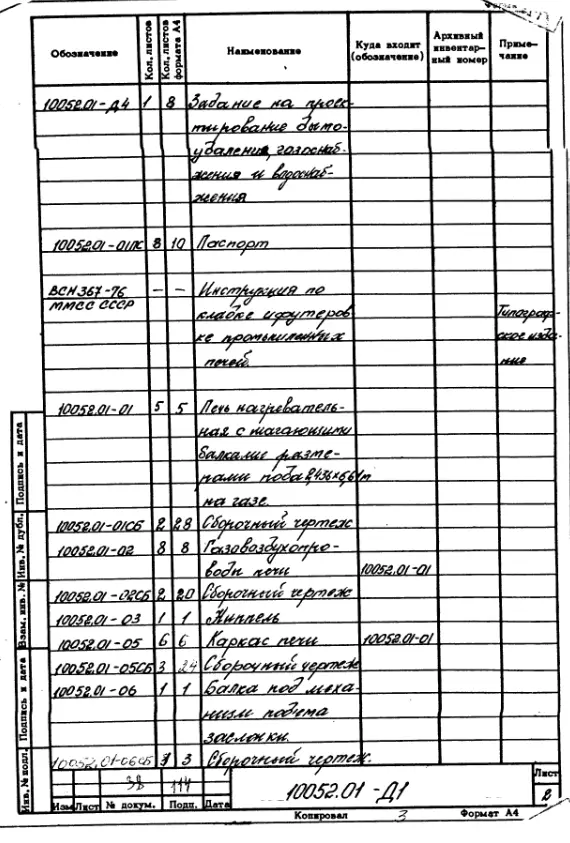 Обозначение Кол. листов Кол. листов формата А4 Наименование Куда входит (обозначение) Архивный инвентарный номер Примечание
10052.01-Д4 1 8 Задание на проек-
тирование дымо-
удаления, газоснаб-
жения и водоснаб-
жения
10052.01-01ПС 8 10 Паспорт
ВСН 367-76 — — Инструкция по
ММСС СССР кладке и футеров Типограф-
ке промышленных ское изда-
печей ние
10052.01-01 5 5 Печь нагреватель-
ная с шагающими
балками разме-
рами пода 2,436х6,61м
на газе.
10052.01-01СБ 2 28 Сборочный чертеж
10052.01-02 8 8 Газовоздухопро-
воды печи 10052.01-01
10052.01-02СБ 2 20 Сборочный чертеж
10052.01-03 1 1 Ниппель
10052.01-05 6 6 Каркас печи 10052.01-01
10052.01-05СБ 3 24 Сборочный чертеж
10052.01-06 1 1 Балка под меха-
низм подъема
заслонки.
10052.01-06СБ 1 3 Сборочный чертеж.
38 114
Изм Лист № докум. Подп. Дата
10052.01-Д1
Лист
2
Копировал 3 Формат А4
Инв. № подл. Подпись и дата Взам. инв. № Инв. № дубл. Подпись и дата